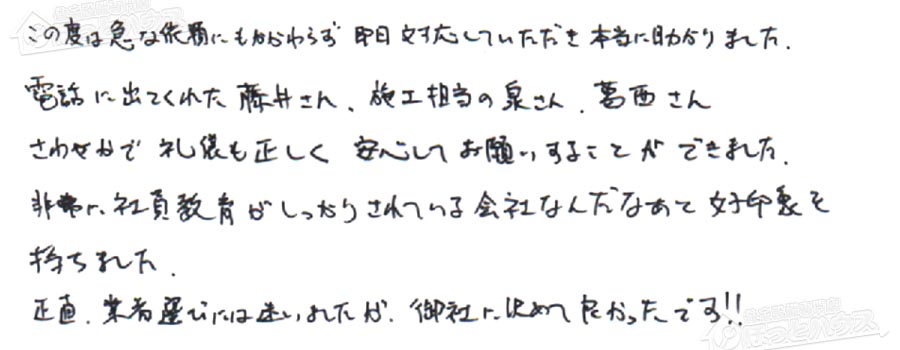 この度は急な依頼にもかかわらず 即日対応していただき 本当に助かりました.
電話に出てくれた 藤井さん、施工担当の泉さん、葛西さん
さわやかで 礼儀も正しく 安心して お願いすることが できました.
非常に、社員教育がしっかりされている会社なんだなあと 好印象を
持ちました.
正直、業者選びには迷いましたが、御社に決めて良かったです!!